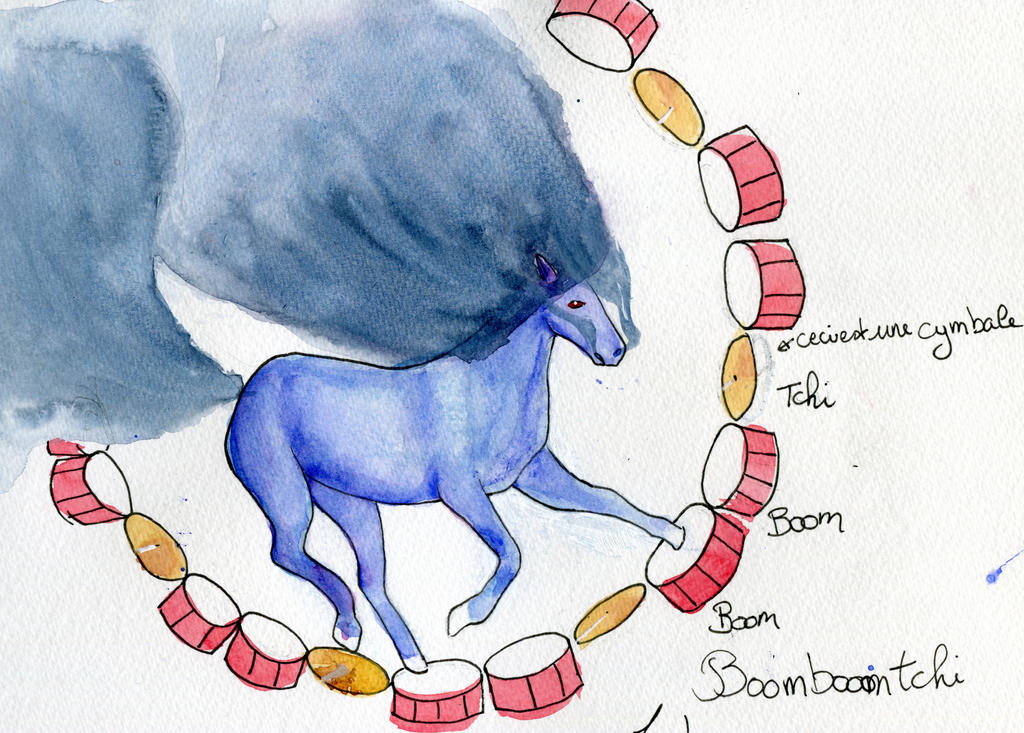 * ceci est une cymbale
Tchi
Boom
Boom
Boomboomtchi